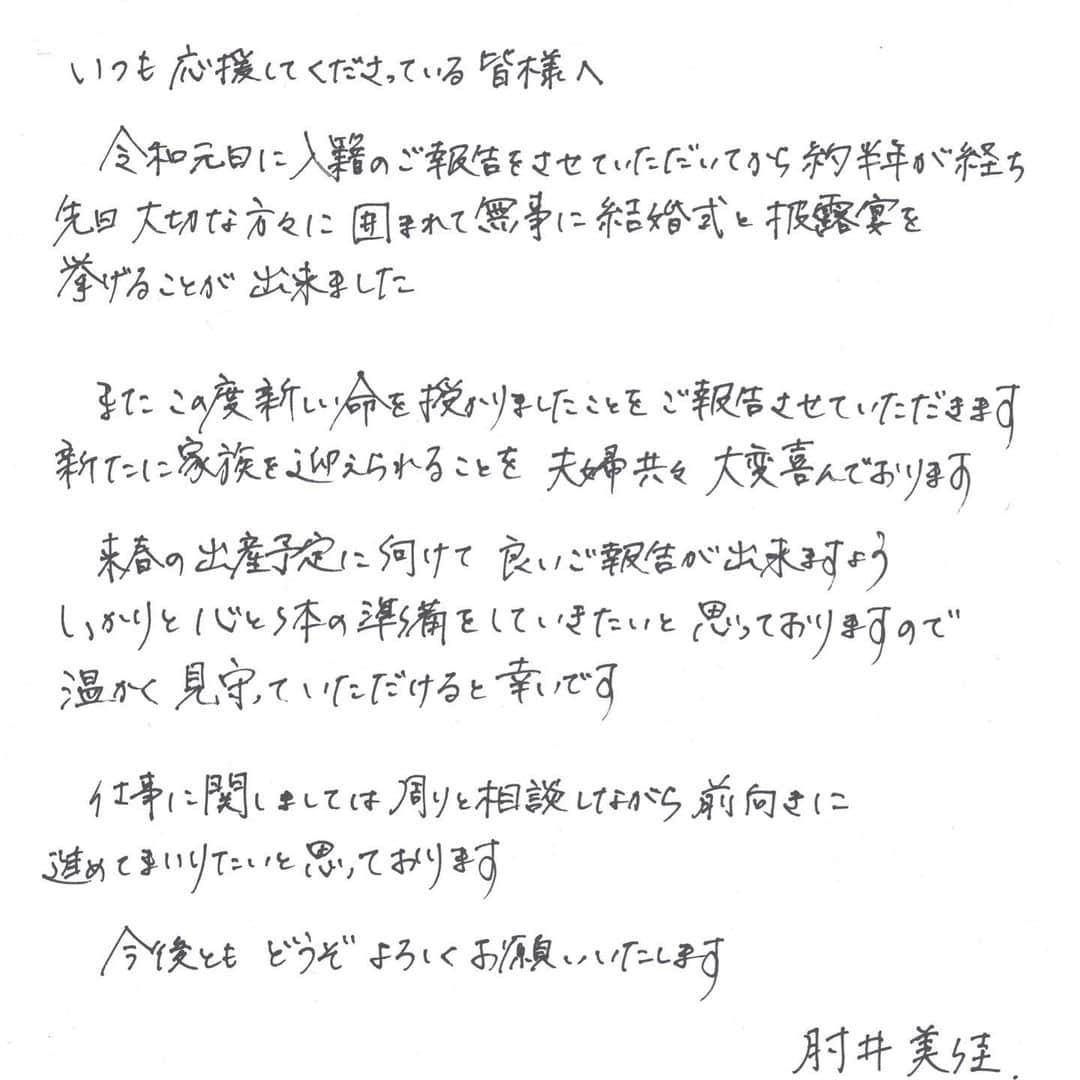 いつも応援してくださっている皆様へ
令和元日に入籍のご報告をさせていただいてから約半年が経ち
先日 大切な方々に 囲まれて無事に結婚式と披露宴を
挙げることが 出来ました
またこの度新しい命を授かりましたことをご報告させていただきます
新たに家族を迎えられることを 夫婦共々 大変喜んでおります
来春の出産予定に向けて 良いご報告が出来ますよう
しっかりと心と体の準備をしていきたいと思っておりますので
温かく見守っていただけると幸いです
仕事に関しましては周りと相談しながら前向きに
進めてまいりたいと思っております
今後とも どうぞ よろしくお願いいたします
肘井美佳.